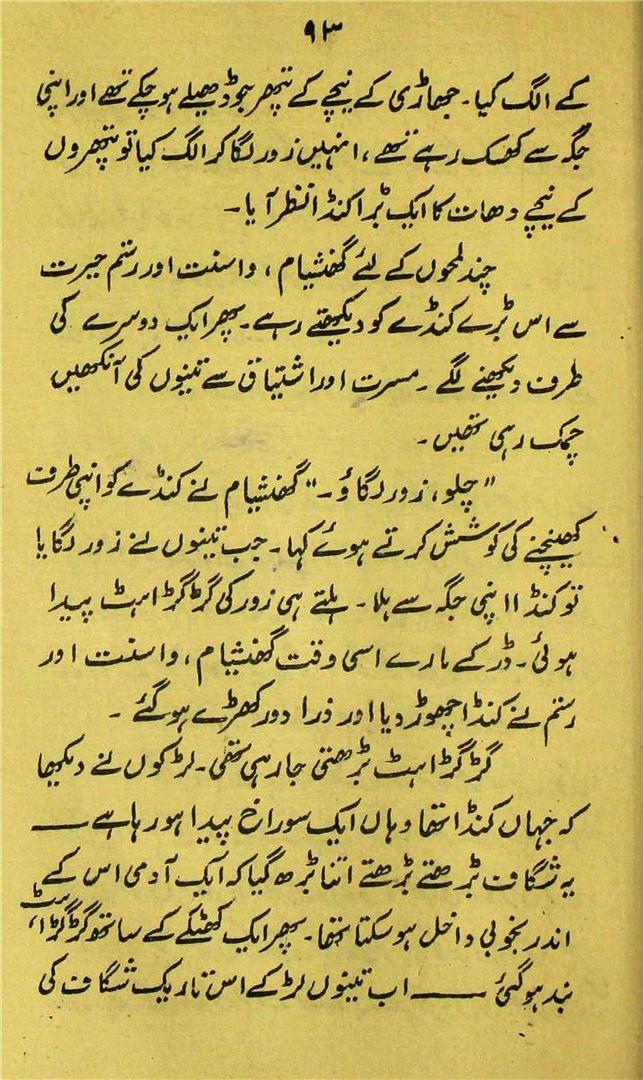 ۹۳
کے الگ کیا۔ جھاڑی کے نیچے کے پتھر جو ڈھیلے ہو چکے تھے اور اپنی
جگہ سے کھسک رہے تھے، انہیں زور لگا کر الگ کیا تو پتھروں
کے نیچے دھات کا ایک بڑا کنڈا نظر آیا۔
چند لمحوں کے لئے گھنشیام، واسنت اور رستم حیرت
سے اس بڑے کنڈے کو دیکھتے رہے۔ پھر ایک دوسرے کی
طرف دیکھنے لگے۔ مسرت اور اشتیاق سے تینوں کی آنکھیں
چمک رہی تھیں۔
"چلو، زور لگاؤ۔" گھنشیام نے کنڈے کو اپنی طرف
کھینچنے کی کوشش کرتے ہوئے کہا۔ جب تینوں نے زور لگایا
تو کنڈا اپنی جگہ سے ہلا۔ ہلتے ہی زور کی گڑگڑاہٹ پیدا
ہوئی۔ ڈر کے مارے اسی وقت گھنشیام، واسنت اور
رستم نے کنڈا چھوڑ دیا اور ذرا دور کھڑے ہو گئے۔
گڑگڑاہٹ بڑھتی جا رہی تھی۔ لڑکوں نے دیکھا
کہ جہاں کنڈا تھا وہاں ایک سوراخ پیدا ہو رہا ہے ——
یہ شگاف بڑھتے بڑھتے اتنا بڑھ گیا کہ ایک آدمی اس کے
اندر بخوبی داخل ہو سکتا تھا۔ پھر ایک کھٹکے کے ساتھ گڑگڑاہٹ
بند ہو گئی —— اب تینوں لڑکے اس تاریک شگاف کی